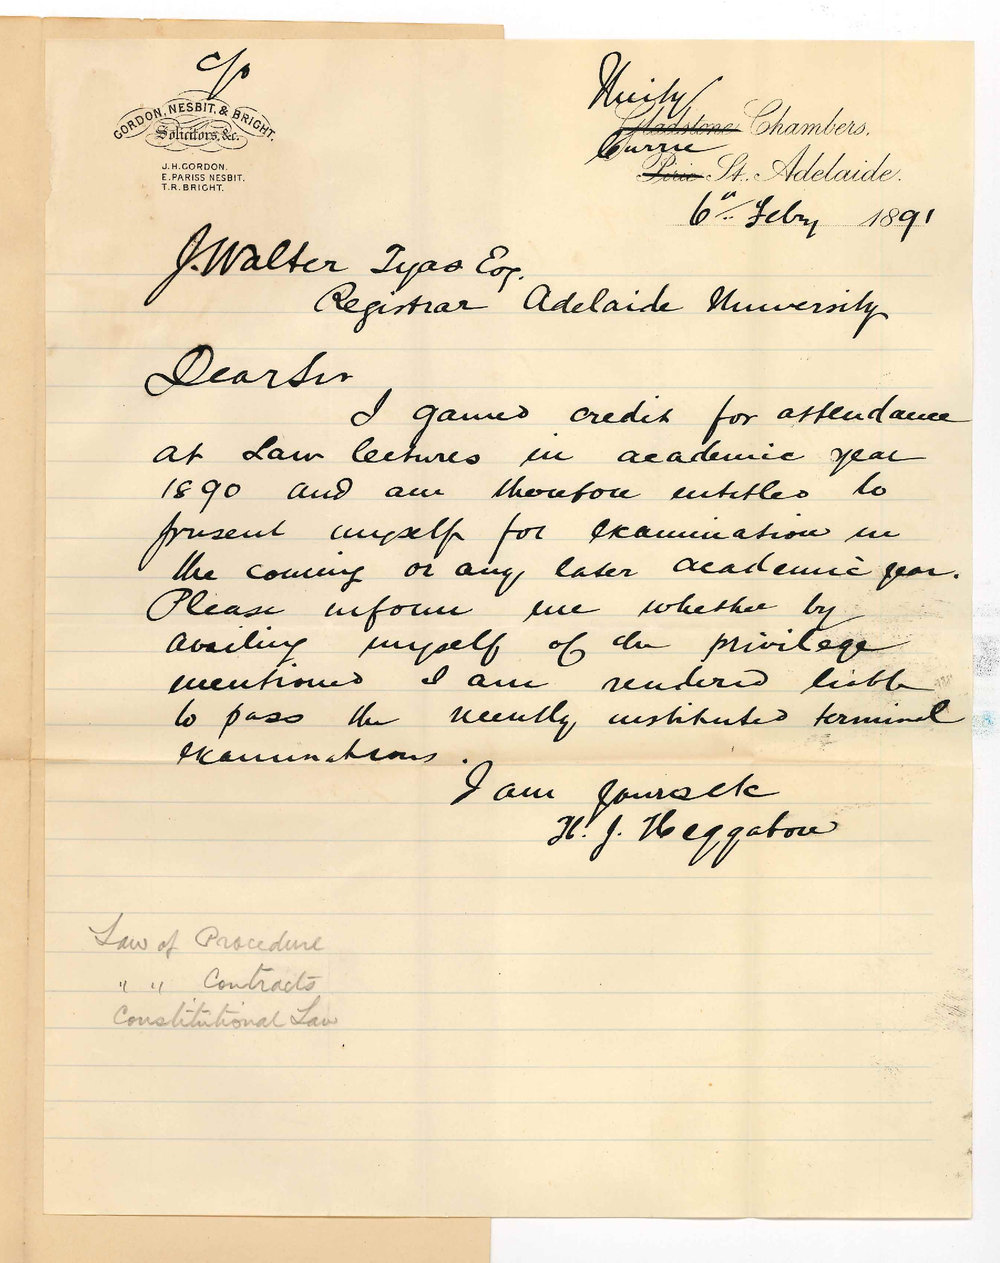 c/o
GORDON, NESBIT, & BRIGHT.
Solicitors, &c.
J.H. GORDON.
E. PARISS NESBIT.
T.R. BRIGHT.
Unity
Gladstone Chambers.
Currie
Pirie St. Adelaide.
6th Feby 1891
J. Walter Tyas Esq.
Registrar Adelaide University
Dear Sir
I gained credit for attendance
at Law lectures in academic year
1890 and am therefore entitled to
present myself for examination in
the coming or any later academic year.
Please inform me whether by
availing myself of the privilege
mentioned I am rendered liable
to pass the recently instituted terminal
examinations.
I am yours etc
H. J.
Law of Procedure
" " Contracts
Constitutional Law